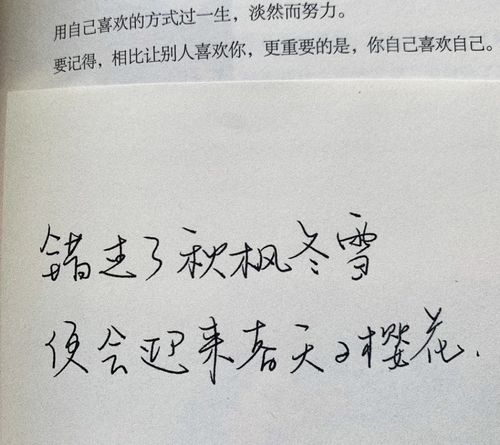 用自己喜欢的方式过一生，淡然而努力。
要记得，相比让别人喜欢你，更重要的是，你自己喜欢自己。
错走了秋枫冬雪
便会迎来春天的樱花.